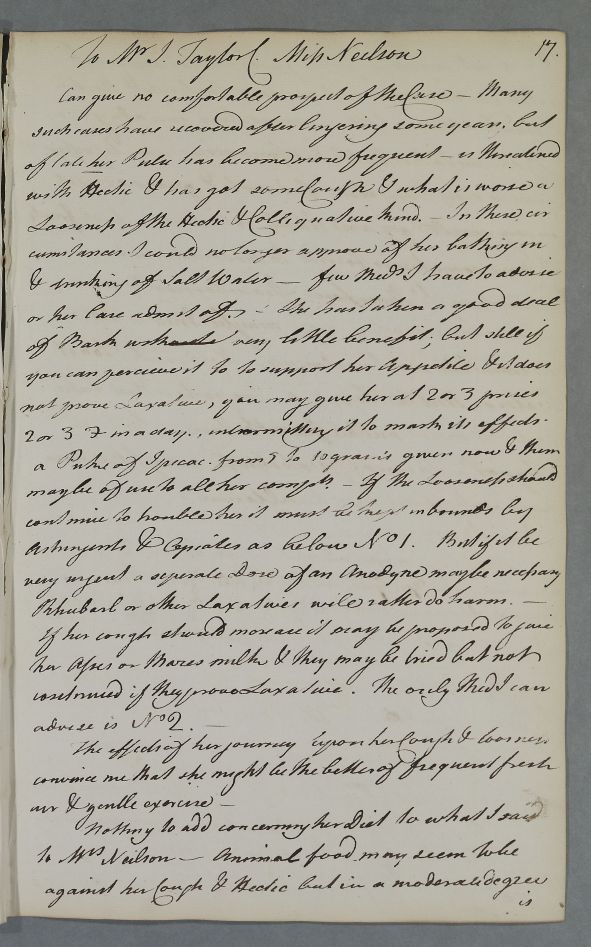 To Mr J. Taylor C. Miss Neilson 17.
Can give no comfortable prospect of the Case – Many
such cases have recovered after lingering some years, but
of late her Pulse has become more frequent – is threatened
with Hectic & has got some Cough & what is worse a
Looseness of the Hectic & Colliquative kind. – In these cir
cumstances I could no longer approve of her bathing in
& drinking of Salt Water – few Meds I have to advise
or her Case admit of, – She has taken a good deal
of Bark very little benefit; but still if
you can percieve it to to support her Appetite & it does
not prove Laxative, you may give her at 2 or 3 prises
2 or 3 ʒ in a day., intermitting it to mark its effects.
a Puke of Ipecac. from 5 to 10 grains given now & then
may be of use to all her compts. – If the Looseness should
continue to trouble her it must be kept in bounds by
Astringents & Opiates as below No 1. But if it be
very urgent a seperate Dose of an Anodyne may be necessary
Rhubarb or other Laxatives will rather do harm. –
If her cough should increase it may be proposed to give
her Asses or Mares milk & they may be tried but not
continued if they prove Laxative. The only Med I can
advise is No 2. –
The effects of her journey upon her Cough & looseness
convince me that she might be the better of frequent fresh
air & gentle exercise –
Nothing to add concerning her Diet to what I said
to Mrs Neilson – Animal food may seem to be
against her Cough & Hectic but in a moderate degree
is